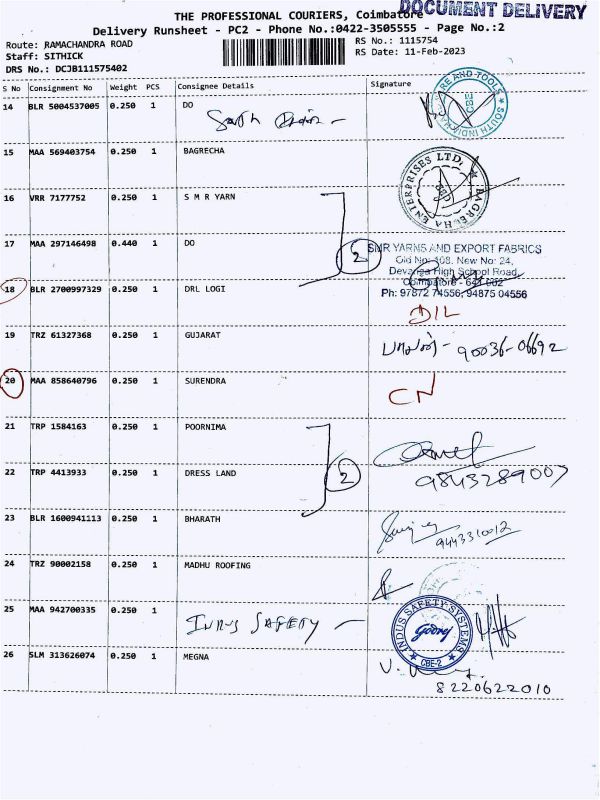 DOCUMENT DELIVERY
THE PROFESSIONAL COURIERS, Coimbatore
Delivery Runsheet - PC2 - Phone No.:0422-3505555 - Page No.:2
Route: RAMACHANDRA ROAD
Staff: SITHICK
DRS No.: DCJB111575402
RS No.: 1115754
RS Date: 11-Feb-2023
S No Consignment No Weight PCS Consignee Details Signature
14 BLR 5004537005 0.250 1 DO
South
CBE
15 MAA 569403754 0.250 1 BAGRECHA
BAGRECHA ENTERPRISES LTD.
16 VRR 7177752 0.250 1 S M R YARN
17 MAA 297146498 0.440 1 DO
2
SMR YARNS AND EXPORT FABRICS
Old No: 108, New No: 24,
Devanga High School Road,
Coimbatore - 641 002
Ph: 97872 74556, 94875 04556
18 BLR 2700997329 0.250 1 DRL LOGI
DIL
19 TRZ 61327368 0.250 1 GUJARAT
90036-06692
20 MAA 858640796 0.250 1 SURENDRA
CN
21 TRP 1584163 0.250 1 POORNIMA
22 TRP 4413933 0.250 1 DRESS LAND
2
9843289007
23 BLR 1600941113 0.250 1 BHARATH
9443310012
24 TRZ 90002158 0.250 1 MADHU ROOFING
25 MAA 942700335 0.250 1
INDUS SAFETY
INDUS SAFETY SYSTEMS
Godrej
CBE-2
26 SLM 313626074 0.250 1 MEGNA
8220622010